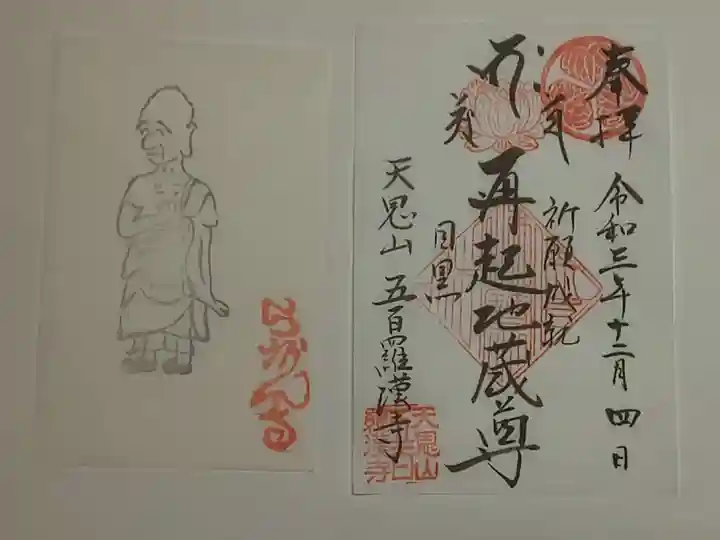 奉拝
令和三年十二月四日
祈願成就
再起地蔵尊
目黒
天恩山 五百羅漢寺
天恩山
五百
羅漢寺
らかんさん